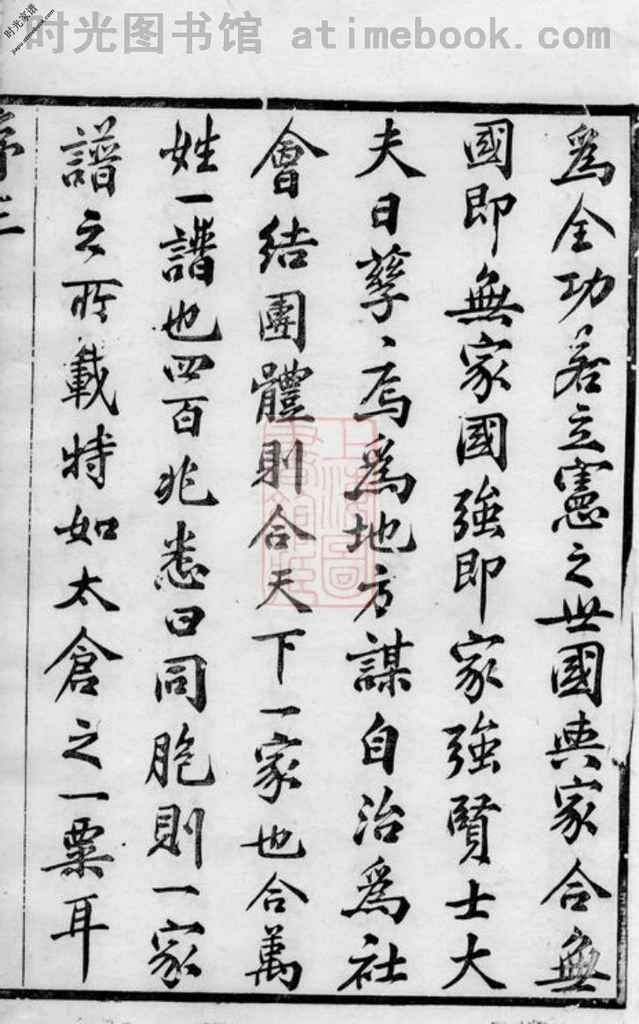 时光图书馆 atimebook.com
时光家谱
爲全功若立憲之世國與家合無
國即無家國強即家強賢士大
夫日孳、焉爲地方謀自治爲社
會結團體則合天下一家也合萬
姓一譜也四百兆悉曰同胞則一家
譜之所載特如太倉之一粟耳
序三